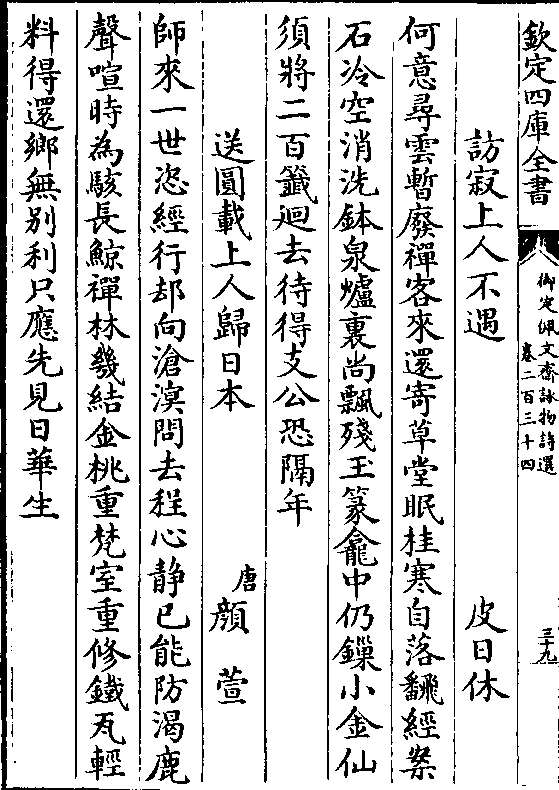 欽定四庫全書
御定佩文齋詠物詩選
卷二百三十四
三十九
訪寂上人不遇
皮日休
何意尋雲暫廢禪客來還寄草堂眠桂寒自落翻經案
石冷空消洗鉢泉爐裏尚飄殘玉篆龕中仍鏁小金仙
須將二百籤迴去待得支公恐隔年
送圓載上人歸日本
唐
顔萱
師來一世恣經行却向滄溟問去程心静已能防渇鹿
聲喧時為駭長鯨禪林幾結金桃重梵室重修鐵瓦輕
料得還鄉無别利只應先見日華生